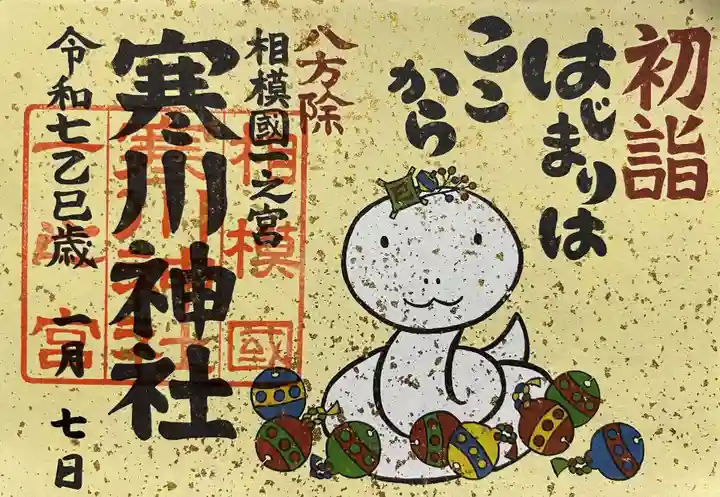 初詣
はじまりは
ここ
から
八方除
相模國一之宮
寒川神社
令和七乙巳歳 一月 七日
相模國
寒川神社
一之宮